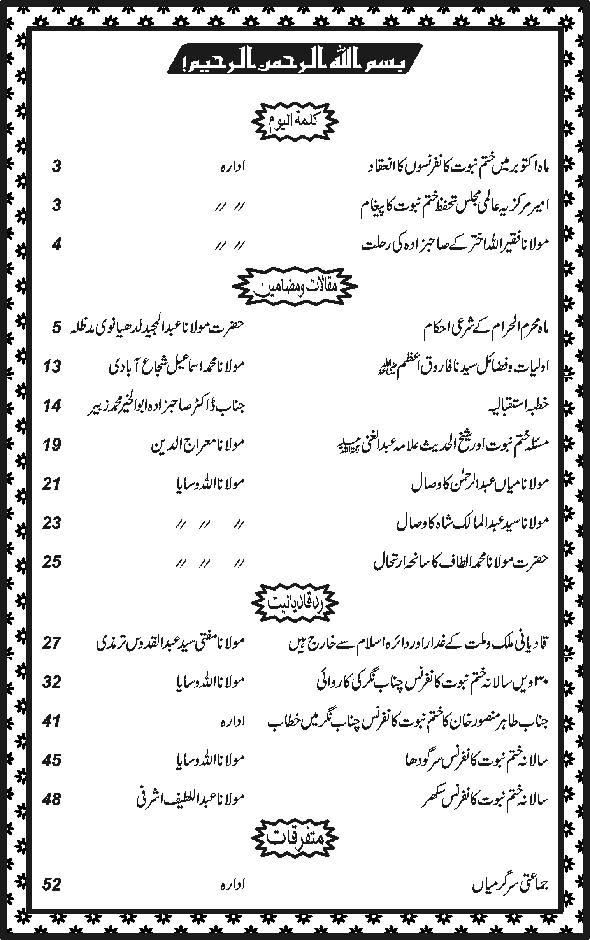 بسم اللہ الرحمن الرحیم!
کلمۃ الیوم
ماہ اکتوبر میں ختم نبوت کانفرنسوں کا انعقاد ادارہ 3
امیر مرکزیہ عالمی مجلس تحفظ ختم نبوت کا پیغام // // 3
مولانا فقیر اللہ اختر کے صاحبزادہ کی رحلت // // 4
مقالات ومضامین
ماہ محرم الحرام کے شرعی احکام حضرت مولانا عبدالمجید لدھیانوی مدظلہ 5
اولیات وفضائل سیدنا فاروق اعظم رضی اللہ عنہ مولانا محمد اسماعیل شجاع آبادی 13
خطبہ استقبالیہ جناب ڈاکٹر صاحبزادہ ابوالخیر محمد زبیر 14
مسئلہ ختم نبوت اور شیخ الحدیث علامہ عبدالغنی مولانا معراج الدین 19
مولانا میاں عبدالرحمٰن کا وصال مولانا اللہ وسایا 21
مولانا سید عبدالمالک شاہ کا وصال // // // 23
حضرت مولانا محمد الطاف کا سانحہ ارتحال // // // 25
رد قادیانیت
قادیانی ملک وملت کے غدار اور دائرہ اسلام سے خارج ہیں مولانا مفتی سید عبدالقدوس ترمذی 27
۳۰ ویں سالانہ ختم نبوت کانفرنس چناب نگر کی کاروائی مولانا اللہ وسایا 32
جناب طاہر منصور خان کا ختم نبوت کانفرنس چناب نگر میں خطاب ادارہ 41
سالانہ ختم نبوت کانفرنس سرگودھا مولانا اللہ وسایا 45
سالانہ ختم نبوت کانفرنس سکھر مولانا عبداللطیف اشرفی 48
متفرقات
جماعتی سرگرمیاں ادارہ 52